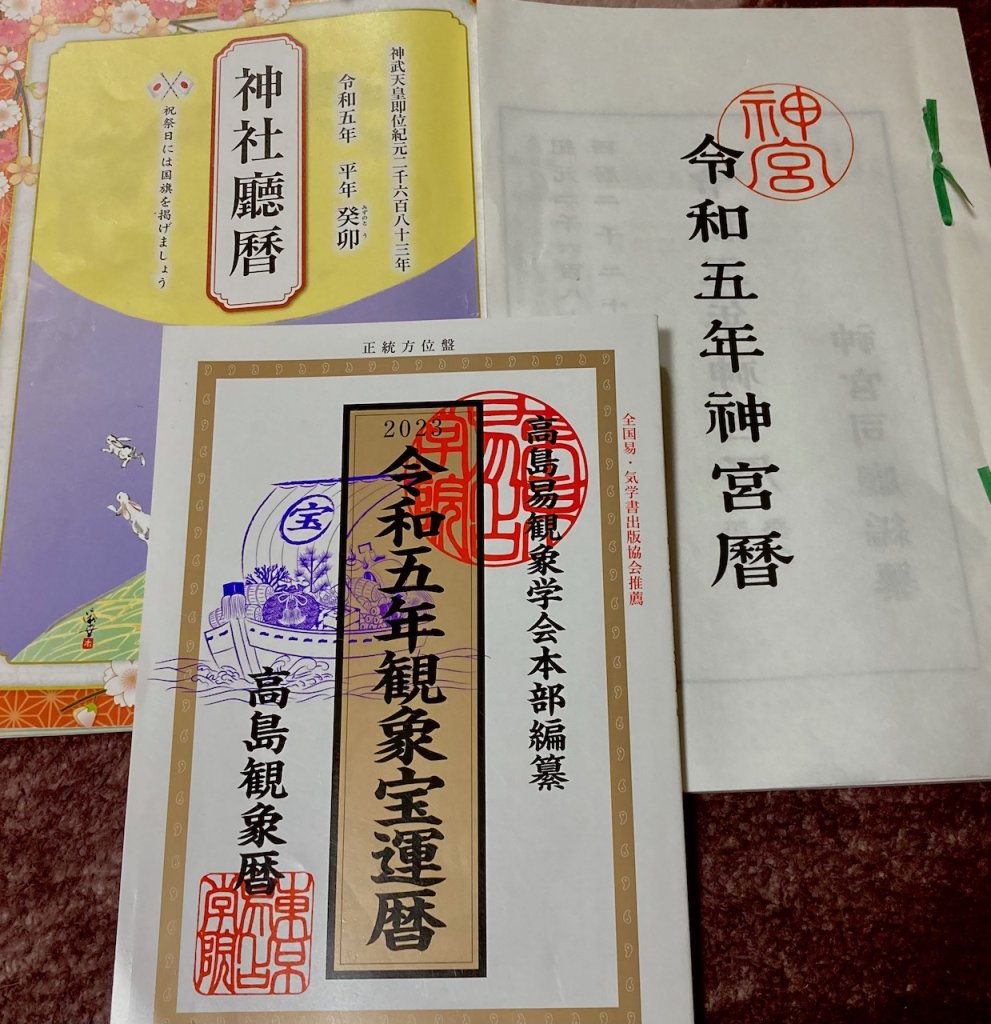 神武天皇即位紀元二千六百八十三年
令和五年 平年 癸卯
みずのと う
神社廳暦
祝祭日には国旗を掲げましょう
神宮
令和五年神宮暦
正統方位盤
全国易・気学書出版協会推薦
高島易観象学会本部編纂
2023
令和五年観象宝運暦
宝
高島観象暦
東京易占学院